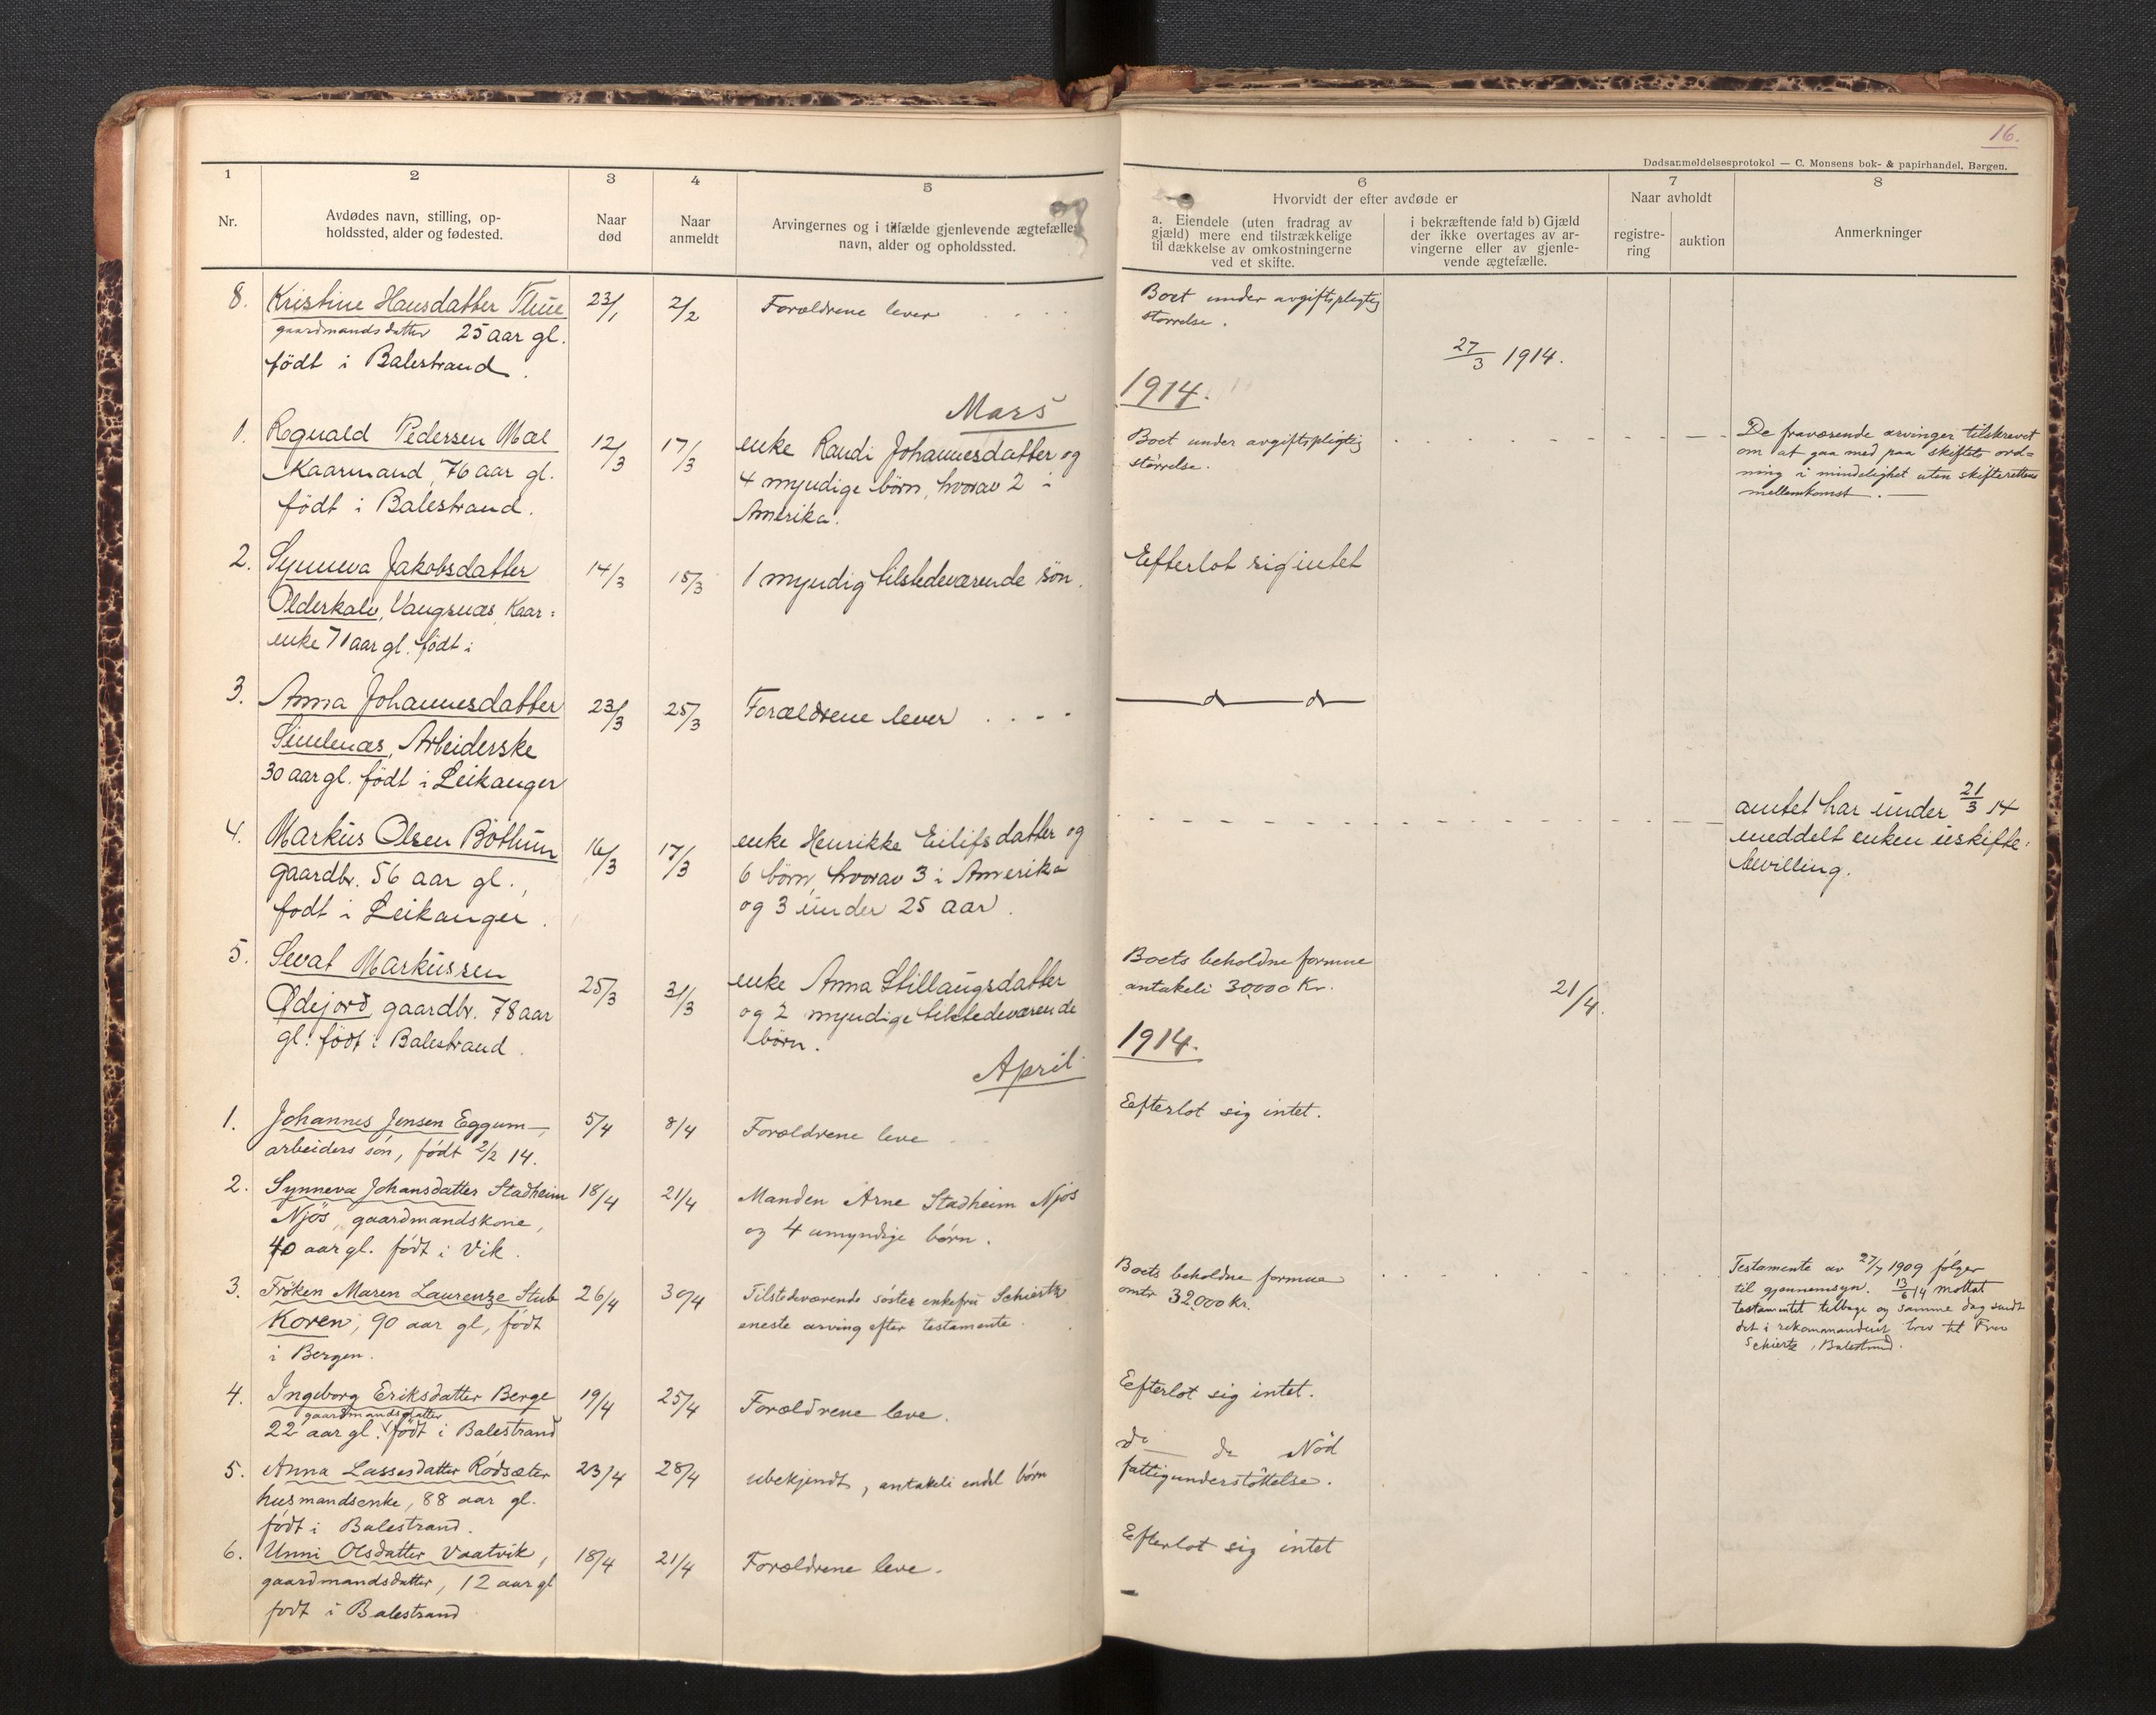 16.
Dødsanmeldelsesprotokol — C. Monsens bok- & papirhandel, Bergen.
1 2 3 4 5 6 7 8
Nr.
Avdødes navn, stilling, op-
holdssted, alder og fødested.
Naar
død
Naar
anmeldt
Arvingernes og i tilfælde gjenlevende ægtefælles
navn, alder og opholdssted.
Hvorvidt der efter avdøde er
a. Eiendele (uten fradrag av
gjæld) mere end tilstrækkelige
til dækkelse av omkostningerne
ved et skifte.
i bekræftende fald b) Gjæld
der ikke overtages av ar-
vingerne eller av gjenle-
vende ægtefælle.
Naar avholdt
registre-
ring
auktion
Anmerkninger
8. Kristine Hansdatter Thue
gaardmandsdatter 25 aar gl.
født i Balestrand.
23/1
2/2
Forældrene lever
Boet under avgiftspligtig
størrelse.
27/3 1914.
Mars 1914.
1. Ragnald Pedersen Mæl
Kaarmand, 76 aar gl.
født i Balestrand.
12/3
17/3
enke Randi Johannesdatter og
4 myndige børn, hvorav 2 i
Amerika.
Boet under avgiftspligtig
størrelse.
De fraværende arvinger tilskrevet
om at gaa med paa skiftets ord=
ning i mindelighet uten skifterettens
mellemkomst.
2. Synneva Jakobsdatter
Olderkalv, Vangsnæs, Kaar=
enke 71 aar gl. født i
14/3
15/3
1 myndig tilstedeværende søn.
Efterlot sig intet
3. Anna Johannesdatter
Simlenæs, Arbeiderske
30 aar gl. født i Leikanger
23/3
25/3
Forældrene lever
d d
4. Markus Olsen Bøthun
gaardbr. 56 aar gl.,
født i Leikanger.
16/3
17/3
enke Henrikke Eilifsdatter og
6 børn, hvorav 3 i Amerika
og 3 under 25 aar.
amtet har under 21/3 14
meddelt enken uskifte-
bevilling.
5. Sevat Markussen
Ødejord, gaardbr. 78 aar
gl. født i Balestrand.
25/3
31/3
enke Anna Stillaugsdatter
og 2 myndige tilstedeværende
børn.
Boets beholdne formue
antakeli 30000 Kr.
21/4.
April 1914.
1. Johannes Jensen Eggum
arbeiders søn, født 2/2 14.
5/4
8/4
Forældrene leve
Efterlot sig intet.
2. Synneva Johansdatter Stadheim
Njøs, gaardmandskone,
40 aar gl. født i Vik.
18/4
21/4
Manden Arne Stadheim Njøs
og 4 umyndige børn.
3. Frøken Maren Laurenze Stub
Koren, 90 aar gl, født
i Bergen.
26/4
30/4
Tilstedeværende søster enkefru Schiertz
eneste arving efter testamente.
Boets beholdne formue
omtr 32000 kr.
Testamente av 27/7 1909 følger
til gjennemsyn. 13/6 14 mottat
testamentet tilbage og samme dag sendt
det i rekommanderet brev til Fru
Schiertz, Balestrand.
4. Ingeborg Eriksdatter Berge
gaardmandsdatter
22 aar gl. født i Balestrand
19/4
25/4
Forældrene leve.
Efterlot sig intet.
5. Anna Lassesdatter Rødsæter
husmandsenke, 88 aar gl.
født i Balestrand.
23/4
28/4
ubekjendt, antakeli endel børn
do do Nød
fattigunderstøttelse.
6. Unni Olsdatter Vaatvik,
gaardmandsdatter, 12 aar gl
født i Balestrand
18/4
21/4
Forældrene leve.
Efterlot sig intet